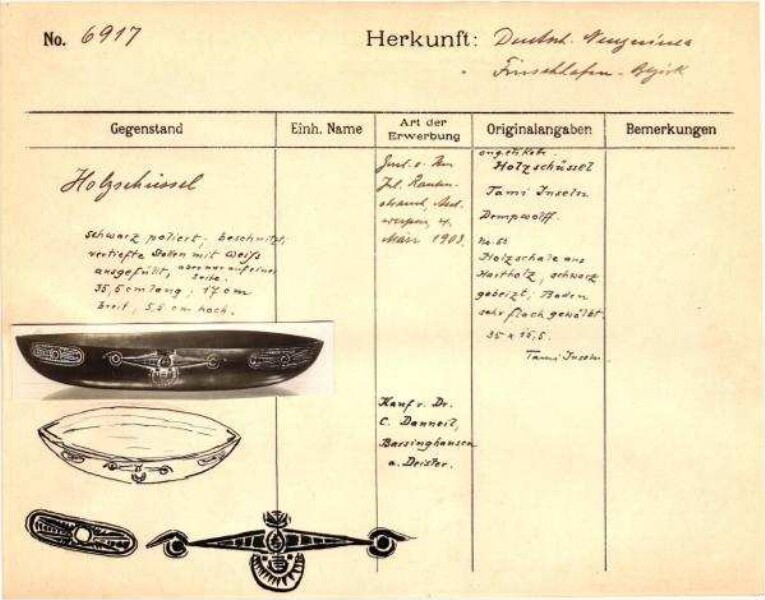 No. 6917
Herkunft: Deutsch. Neuguinea
Finschhafen - Bezirk
Gegenstand
Einh. Name
Art der
Erwerbung
Originalangaben
Bemerkungen
Holzschüssel
schwarz poliert; beschnitzt,
vertiefte Stellen mit Weiß
ausgefüllt, aber nur auf einer
Seite.
35,5 cm lang; 17 cm
breit, 5,5 cm hoch.
Jul. Rauten-
strauch, Ant-
werpen, 4.
März 1903.
Kauf v. Dr.
C. Danneil,
Barsinghausen
a. Deister.
Holzschüssel
Tami Inseln
Dempwolff.
No. 60
Holzschale aus
Hartholz, schwarz
gebeizt; Boden
sehr flach gewölbt.
35 x 16,5.
Tami Inseln.